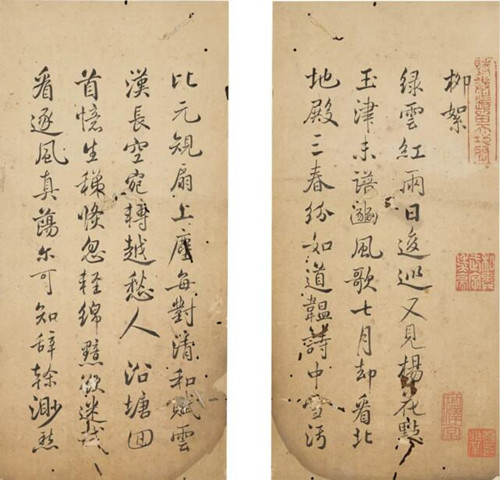 柳絮
綠雲紅雨日逡巡又見楊花點
玉津未諳豳風歌七月却看北
地殿三春紛如道韞詩中雪污
比元規扇上塵每對清和賦雲
漢長空宛轉越愁人 沿塘回
首憶生稊倏忽輕綿黯欲迷試
看逐風真蕩尔可知辭榦渺然